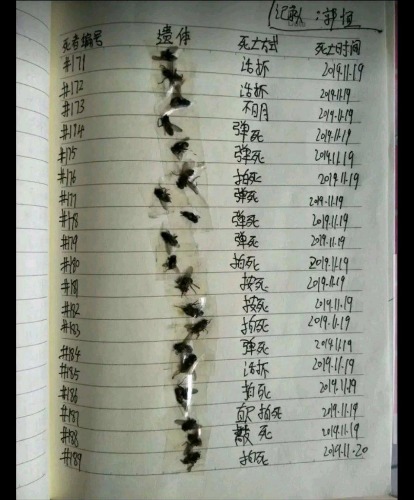 记录人：
死者编号 遗体 死亡方式 死亡时间
#171 活拆 2019.11.19
#172 活拆 2019.11.19
#173 不明 2019.11.19
#174 弹死 2019.11.19
#175 弹死 2019.11.19
#176 拍死 2019.11.19
#177 弹死 2019.11.19
#178 弹死 2019.11.19
#179 弹死 2019.11.19
#180 拍死 2019.11.19
#181 按死 2019.11.19
#182 按死 2019.11.19
#183 拍死 2019.11.19
#184 弹死 2019.11.19
#185 活拆 2019.11.19
#186 拍死 2019.11.19
#187 拍死 2019.11.19
#188 敲死 2019.11.19
#189 拍死 2019.11.20